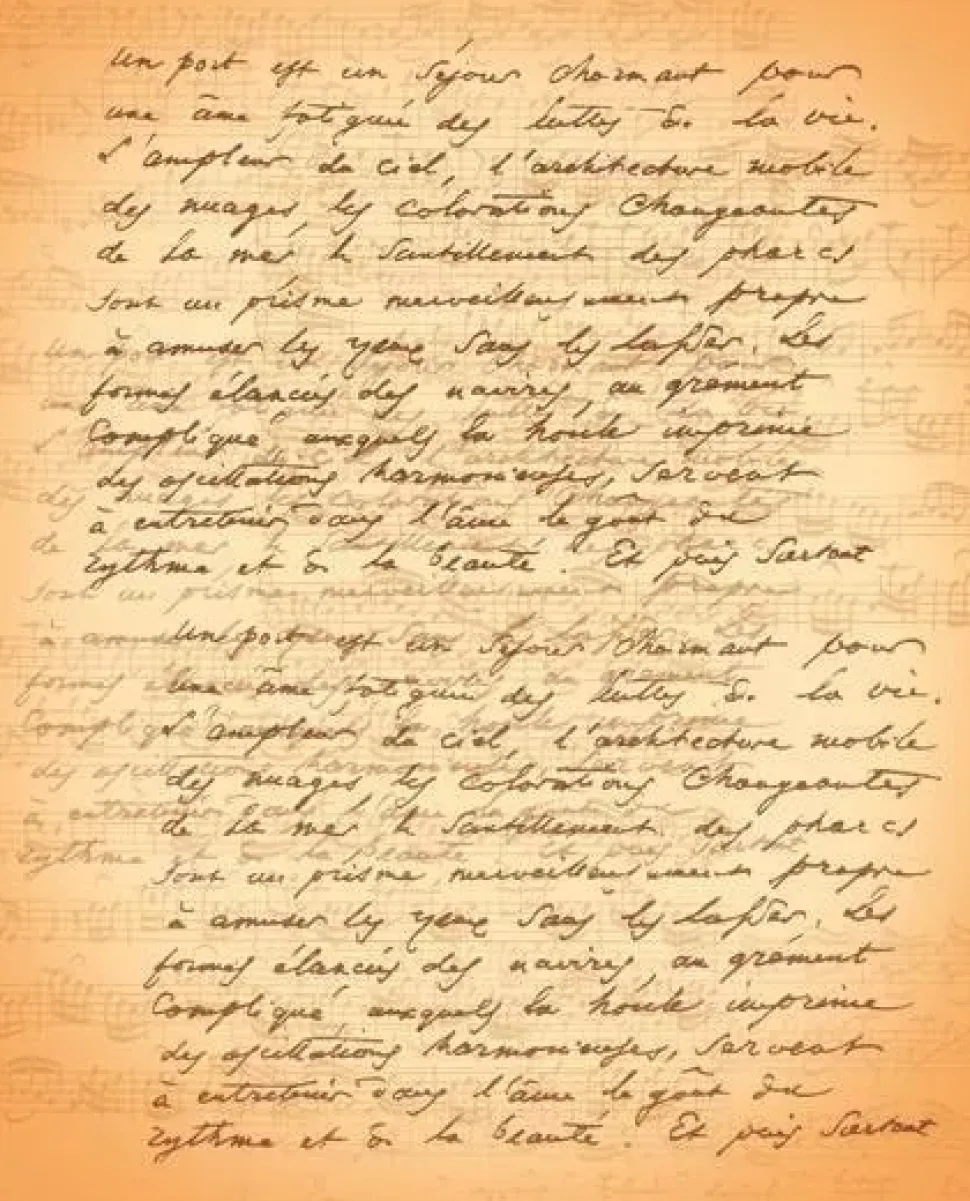 Un port est un séjour charmant pour
une âme fatiguée des luttes de la vie.
L'ampleur du ciel, l'architecture mobile
des nuages, les colorations changeantes
de la mer, le scintillement des phares
sont un prisme merveilleusement propre
à amuser les yeux sans les lasser. Les
formes élancées des navires, au gréement
compliqué, auxquels la houle imprime
des oscillations harmonieuses, servent
à entretenir dans l'âme le goût du
rythme et de la beauté. Et puis surtout
Un port est un séjour charmant pour
une âme fatiguée des luttes de la vie.
L'ampleur du ciel, l'architecture mobile
des nuages, les colorations changeantes
de la mer, le scintillement des phares
sont un prisme merveilleusement propre
à amuser les yeux sans les lasser. Les
formes élancées des navires, au gréement
compliqué, auxquels la houle imprime
des oscillations harmonieuses, servent
à entretenir dans l'âme le goût du
rythme et de la beauté. Et puis surtout